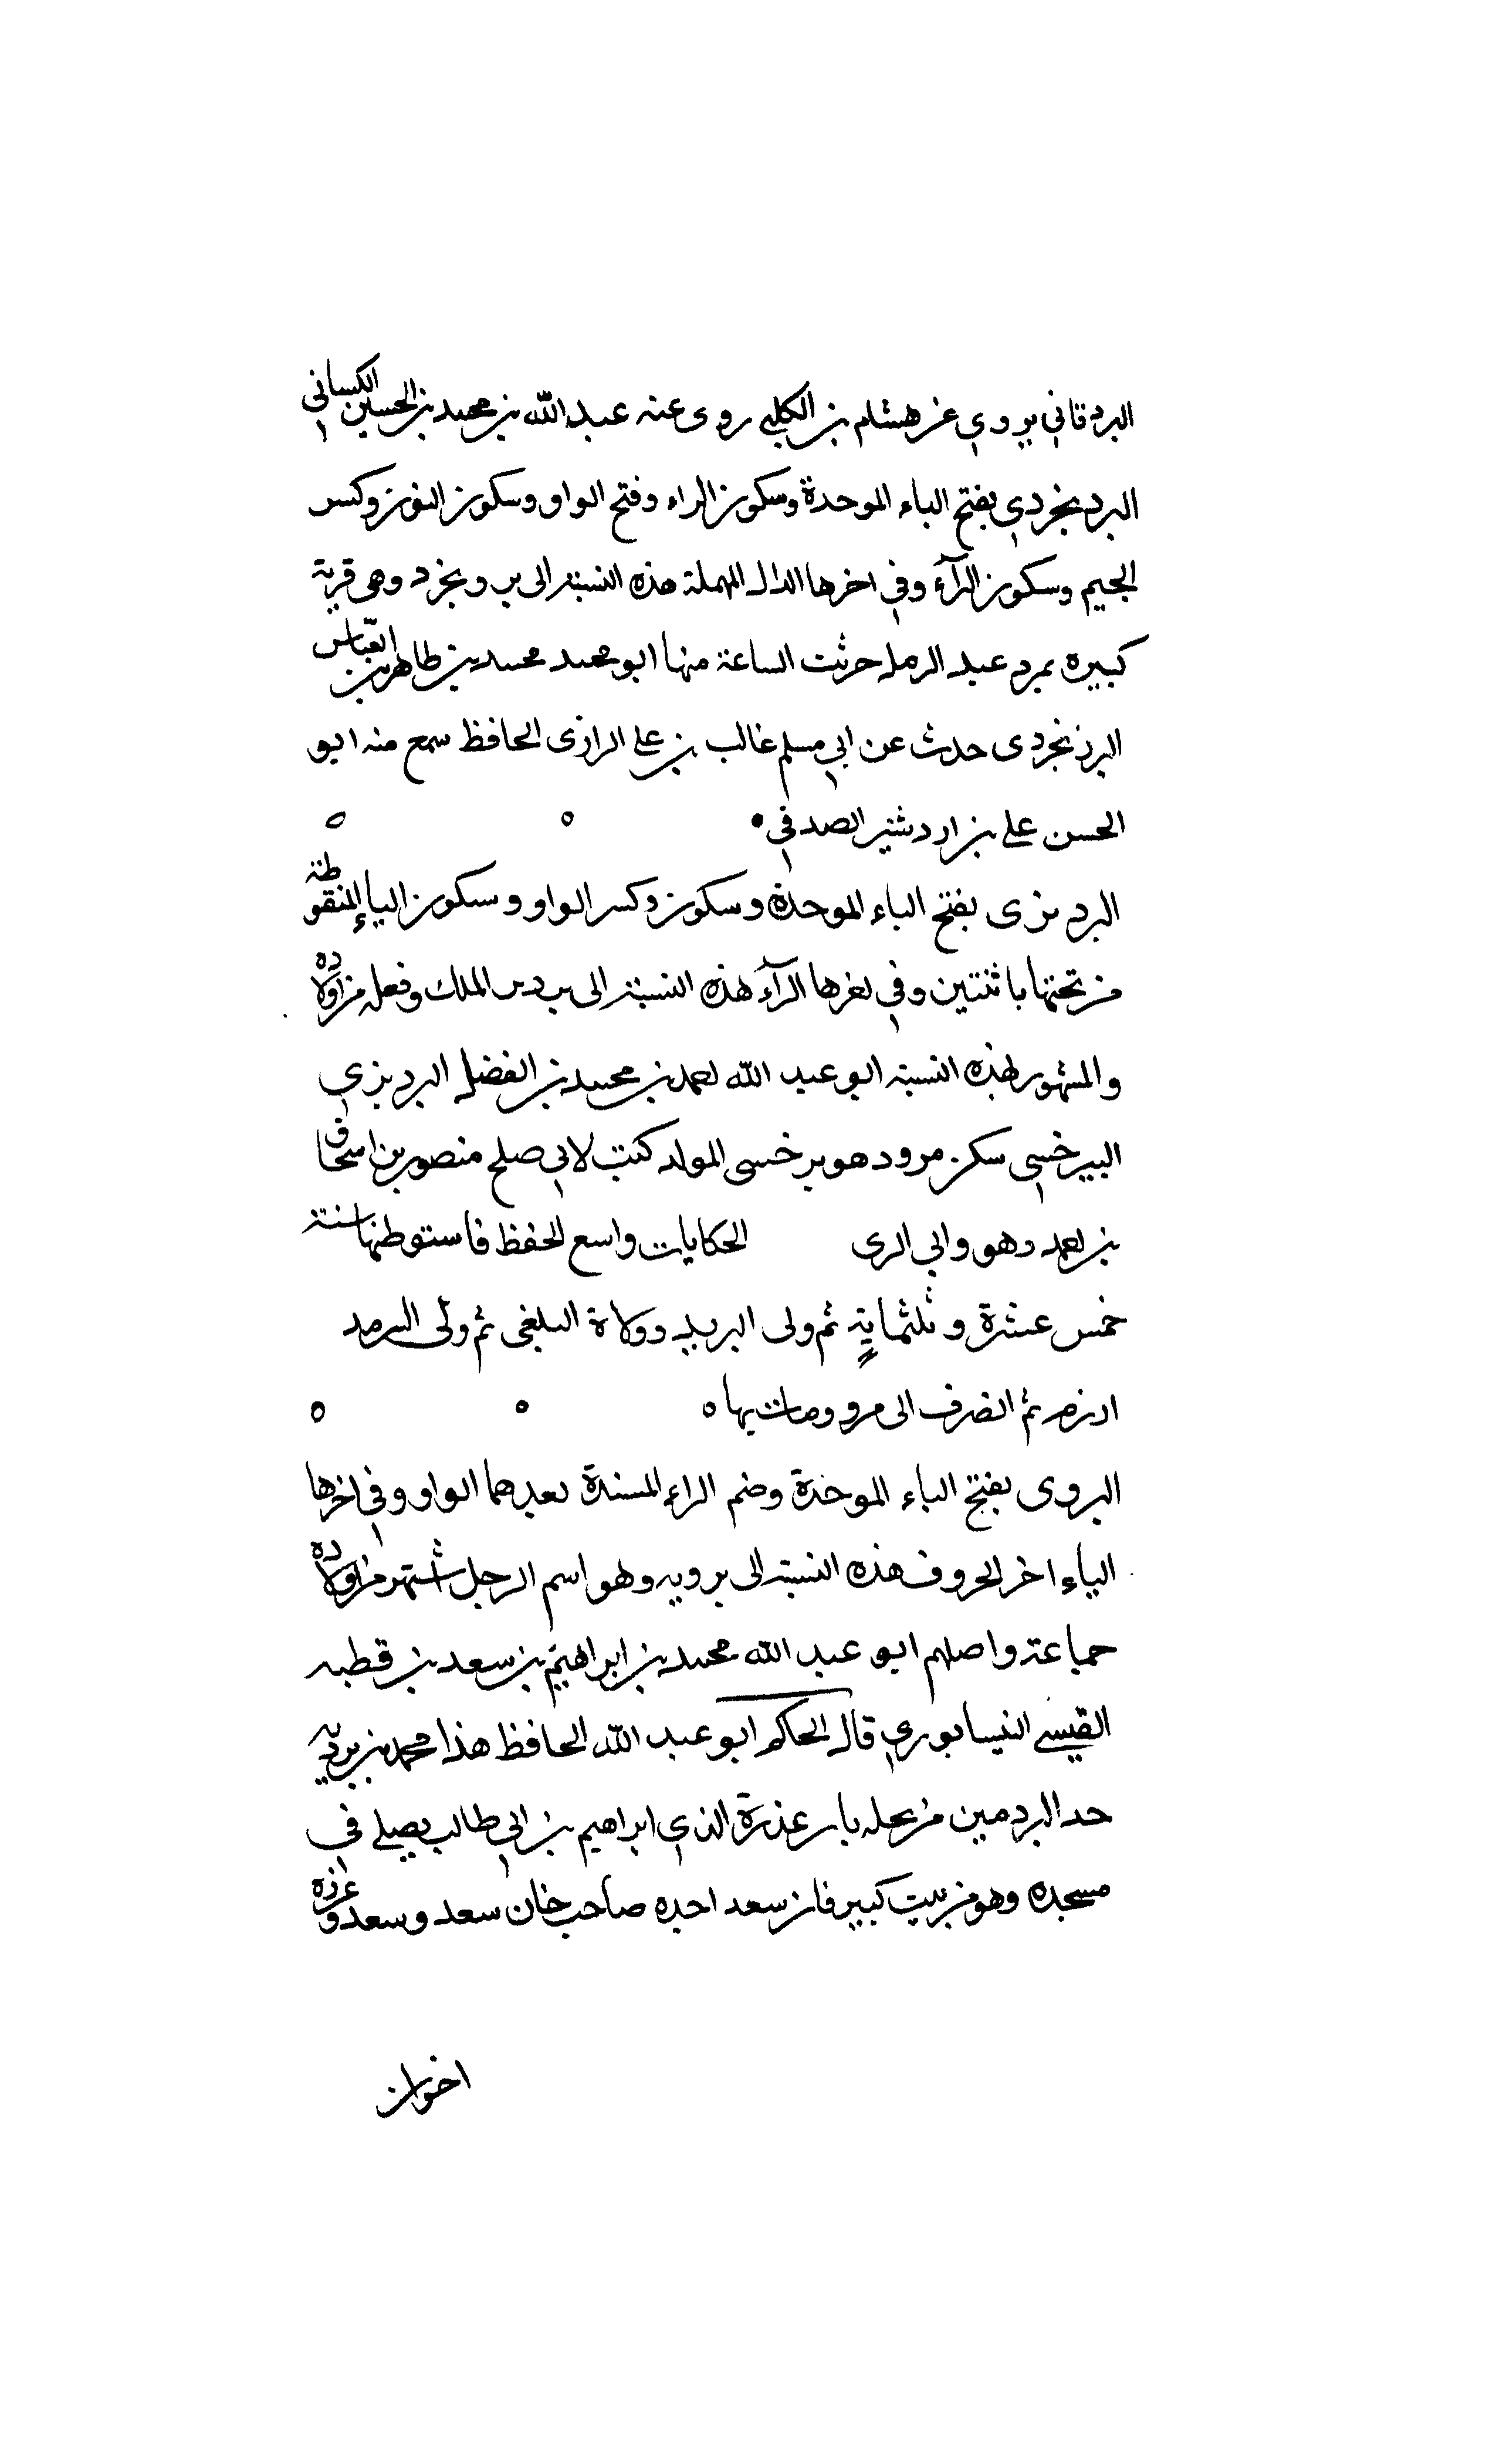 البروقاني يروي عن هشام بن الكلبي روى عنه عبد الله بن محمد بن الحسين الكسائي
البرونجردي بفتح الباء الموحدة وسكون الراء وفتح الواو وسكون النون وكسر
الجيم وسكون الرآء وفي اخرها الدال المهملة هذه النسبة الى برونجرد وهي قرية
كبيرة بمرو عبد الرمل خربت الساعة منها ابو محمد محمد بن طاهر بن العباس
البرونجردي حدث عن ابي مسلم غالب بن علي الرازي الحافظ سمع منه ابو
الحسن علي بن اردشير الصدفي
البرويزى بفتح الباء الموحدة وسكون وكسر الواو وسكون الياء المنقوطة
من تحتها باثنتين وفي اخرها الرآء هذه النسبة الى الملك وفعله من اولاده
والمشهور بهذه النسبة ابو عبد الله احمد بن محمد بن الفضل البرويزي
سكن مرو وهو المولد كتب لابي صلح منصور بن اسحاق
بن احمد وهو والي الري الحكايات واسع الحفظ فاستوطنها سنة
خمس عشرة وثلثماية ثم ولى البريد وولاة البلغمي ثم ولى
ثم انصرف الى مرو ومات بها
البروى بفتح الباء الموحدة وضم الراء المسندة بعدهما الواو وفي اخرها
الياء اخر الحروف هذه النسبة الى برويه وهو اسم الرجل اشتهر من اولاده
جماعة واصلهم ابو عبد الله محمد بن ابراهيم بن سعد بن قطبه
القيسي النيسابوري قال الحاكم ابو عبد الله الحافظ هذا محمد بن برويه
من محله عذرة الذي ابراهيم بن ابي طالب يصلي في
مسجده وهو من بيت كبير فان سعد صاحب خان سعد وسعد وعزره
اخوان